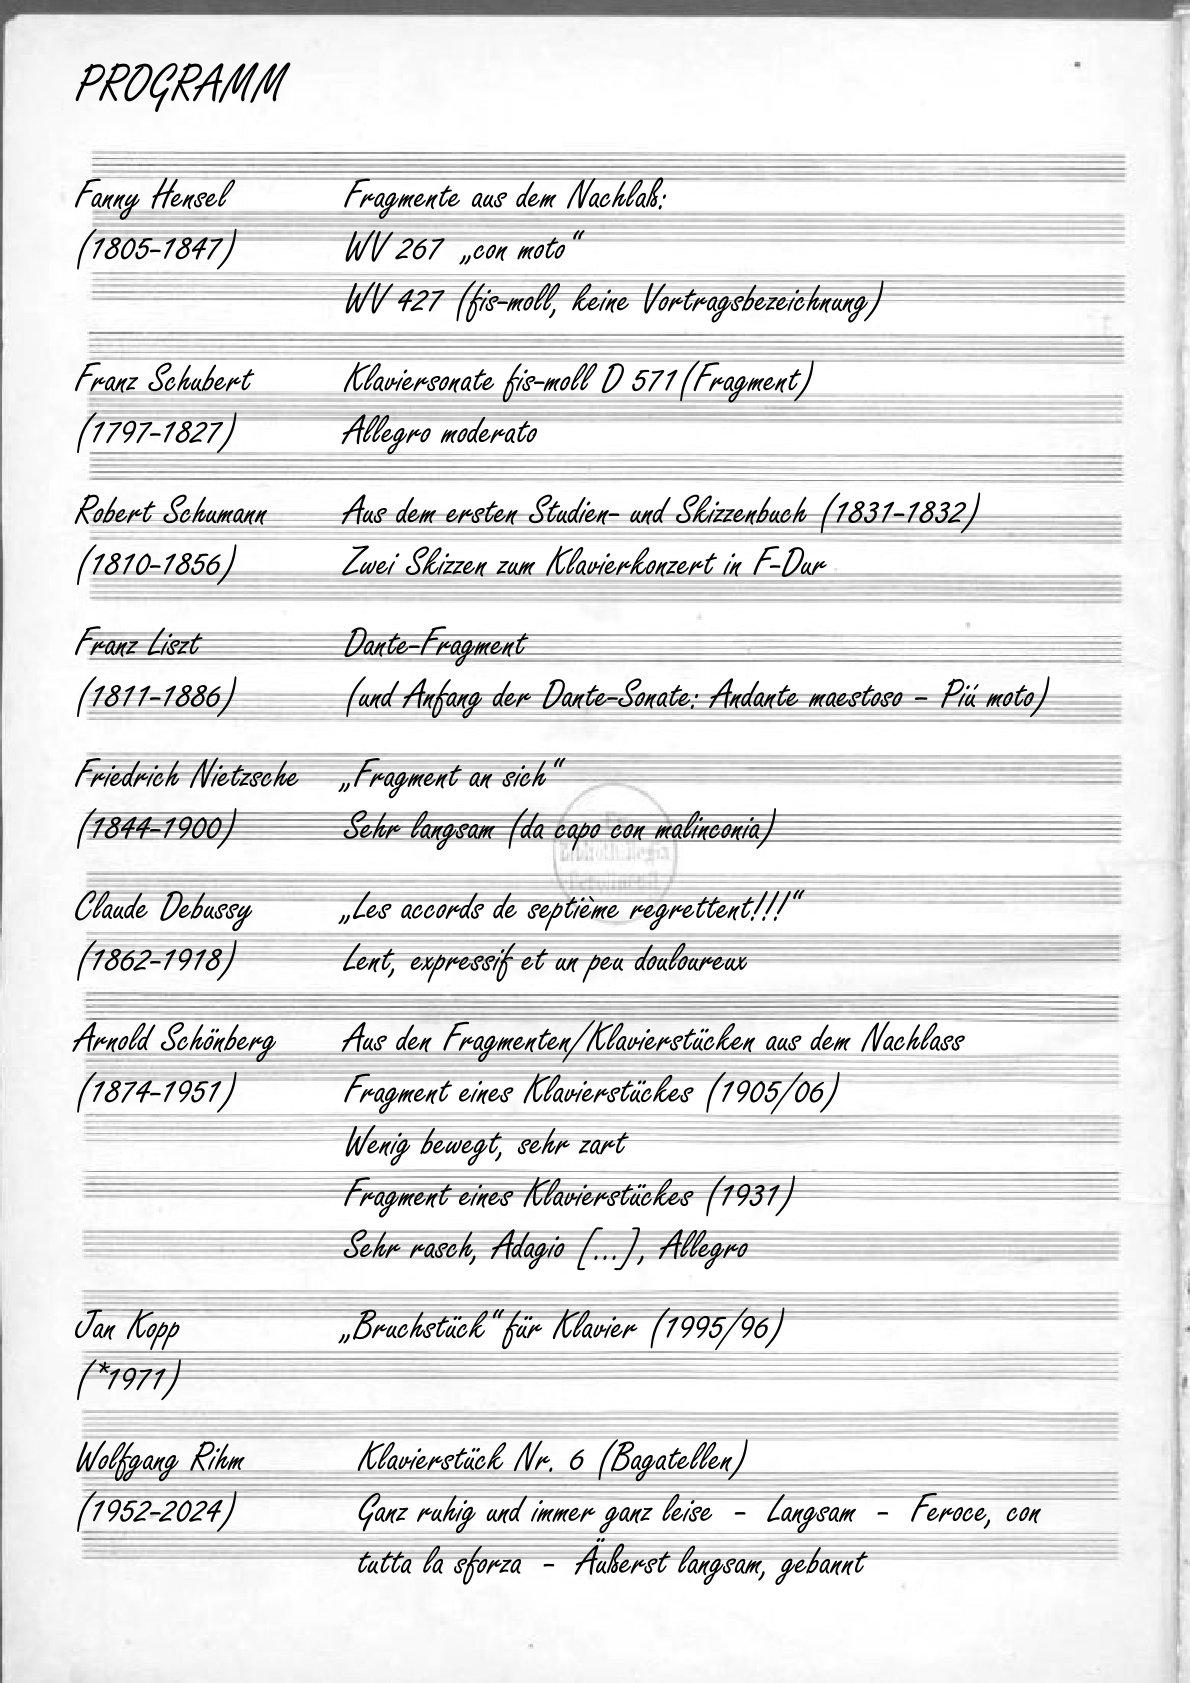 PROGRAMM
Fanny Hensel Fragmente aus dem Nachlaß:
(1805-1847) WV 267 „con moto“
WV 427 (fis-moll, keine Vortragsbezeichnung)
Franz Schubert Klaviersonate fis-moll D 571(Fragment)
(1797-1827) Allegro moderato
Robert Schumann Aus dem ersten Studien- und Skizzenbuch (1831-1832)
(1810-1856) Zwei Skizzen zum Klavierkonzert in F-Dur
Franz Liszt Dante-Fragment
(1811-1886) (und Anfang der Dante-Sonate: Andante maestoso - Piú moto)
Friedrich Nietzsche „Fragment an sich“
(1844-1900) Sehr langsam (da capo con malinconia)
Claude Debussy „Les accords de septième regrettent!!!“
(1862-1918) Lent, expressif et un peu douloureux
Arnold Schönberg Aus den Fragmenten/Klavierstücken aus dem Nachlass
(1874-1951) Fragment eines Klavierstückes (1905/06)
Wenig bewegt, sehr zart
Fragment eines Klavierstückes (1931)
Sehr rasch, Adagio [...], Allegro
Jan Kopp „Bruchstück“ für Klavier (1995/96)
(*1971)
Wolfgang Rihm Klavierstück Nr. 6 (Bagatellen)
(1952-2024) Ganz ruhig und immer ganz leise - Langsam - Feroce, con
tutta la sforza - Äußerst langsam, gebannt